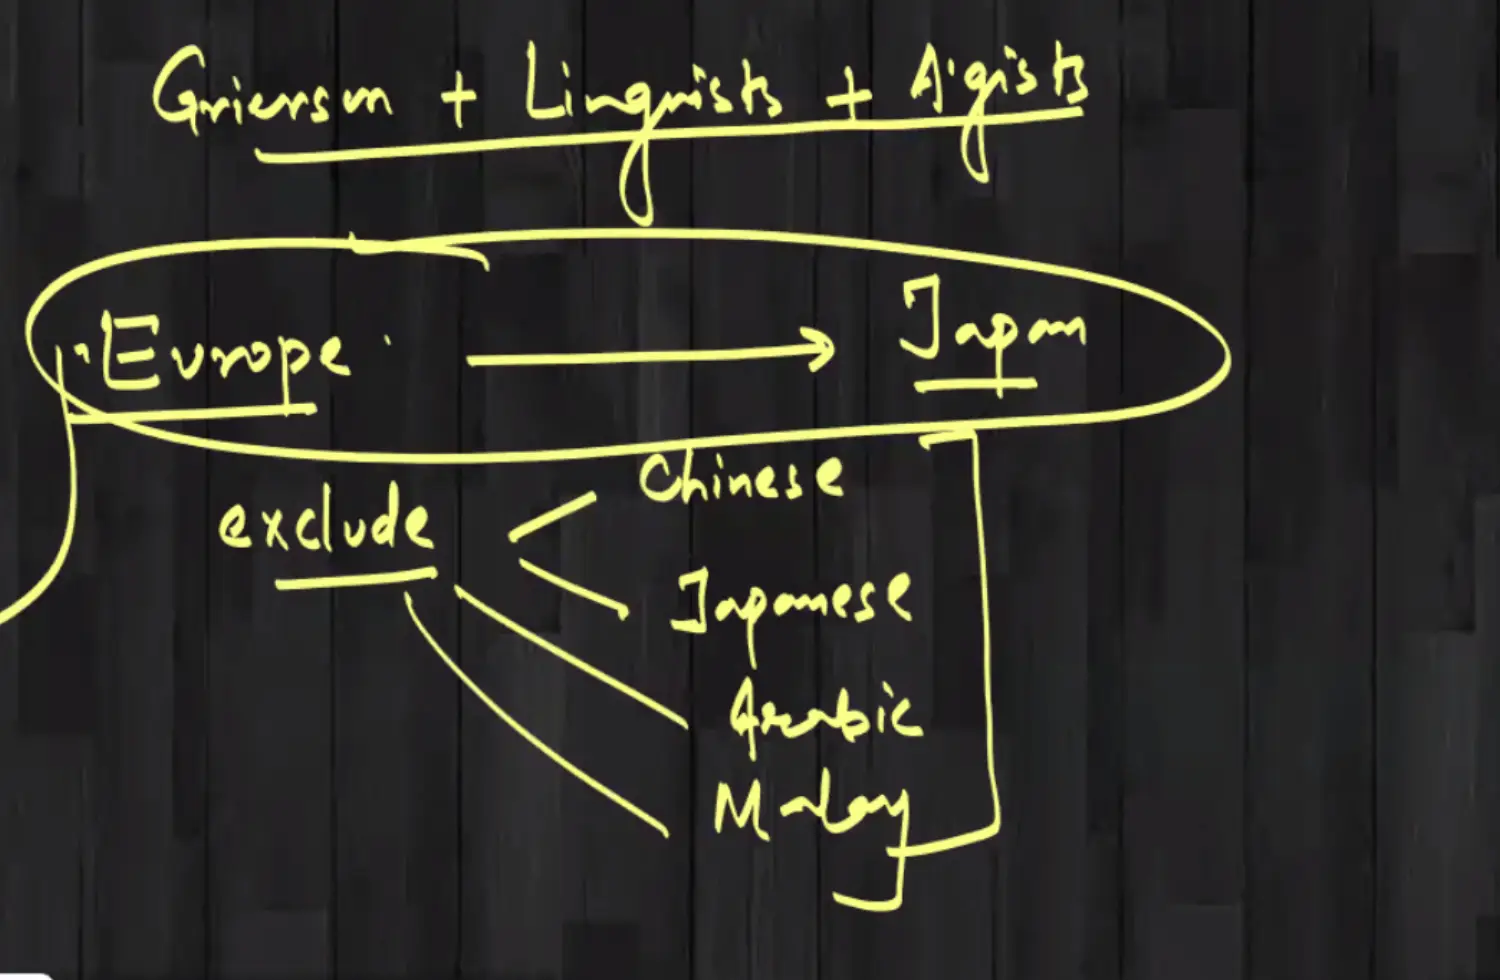 Grierson + Linguists + A'gists
Europe → Japan
exclude
Chinese
Japanese
Arabic
Malay